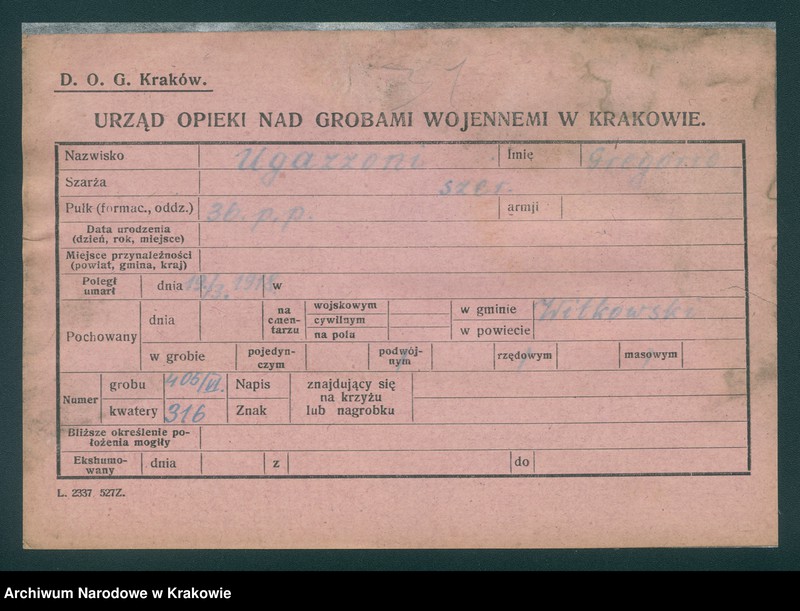 D. O. G. Kraków.
URZĄD OPIEKI NAD GROBAMI WOJENNEMI W KRAKOWIE.
Nazwisko Ugazzoni Imię Gregorio
Szarża szer.
Pułk (formac., oddz.) 30. p.p. armji
Data urodzenia
(dzień, rok, miejsce)
Miejsce przynależności
(powiat, gmina, kraj)
Poległ
umarł dnia 19/3. 1918. w
Pochowany dnia na cmen-tarzu wojskowym w gminie Witkowski
cywilnym
na pola w powiecie
w grobie pojedyn-czym podwój-nym rzędowym masowym
Numer grobu 406/VI. Napis znajdujący się
na krzyżu
kwatery 316 Znak lub nagrobku
Bliższe określenie po-
łożenia mogiły
Ekshumo-
wany dnia z do
L. 2337 527Z.
Archiwum Narodowe w Krakowie